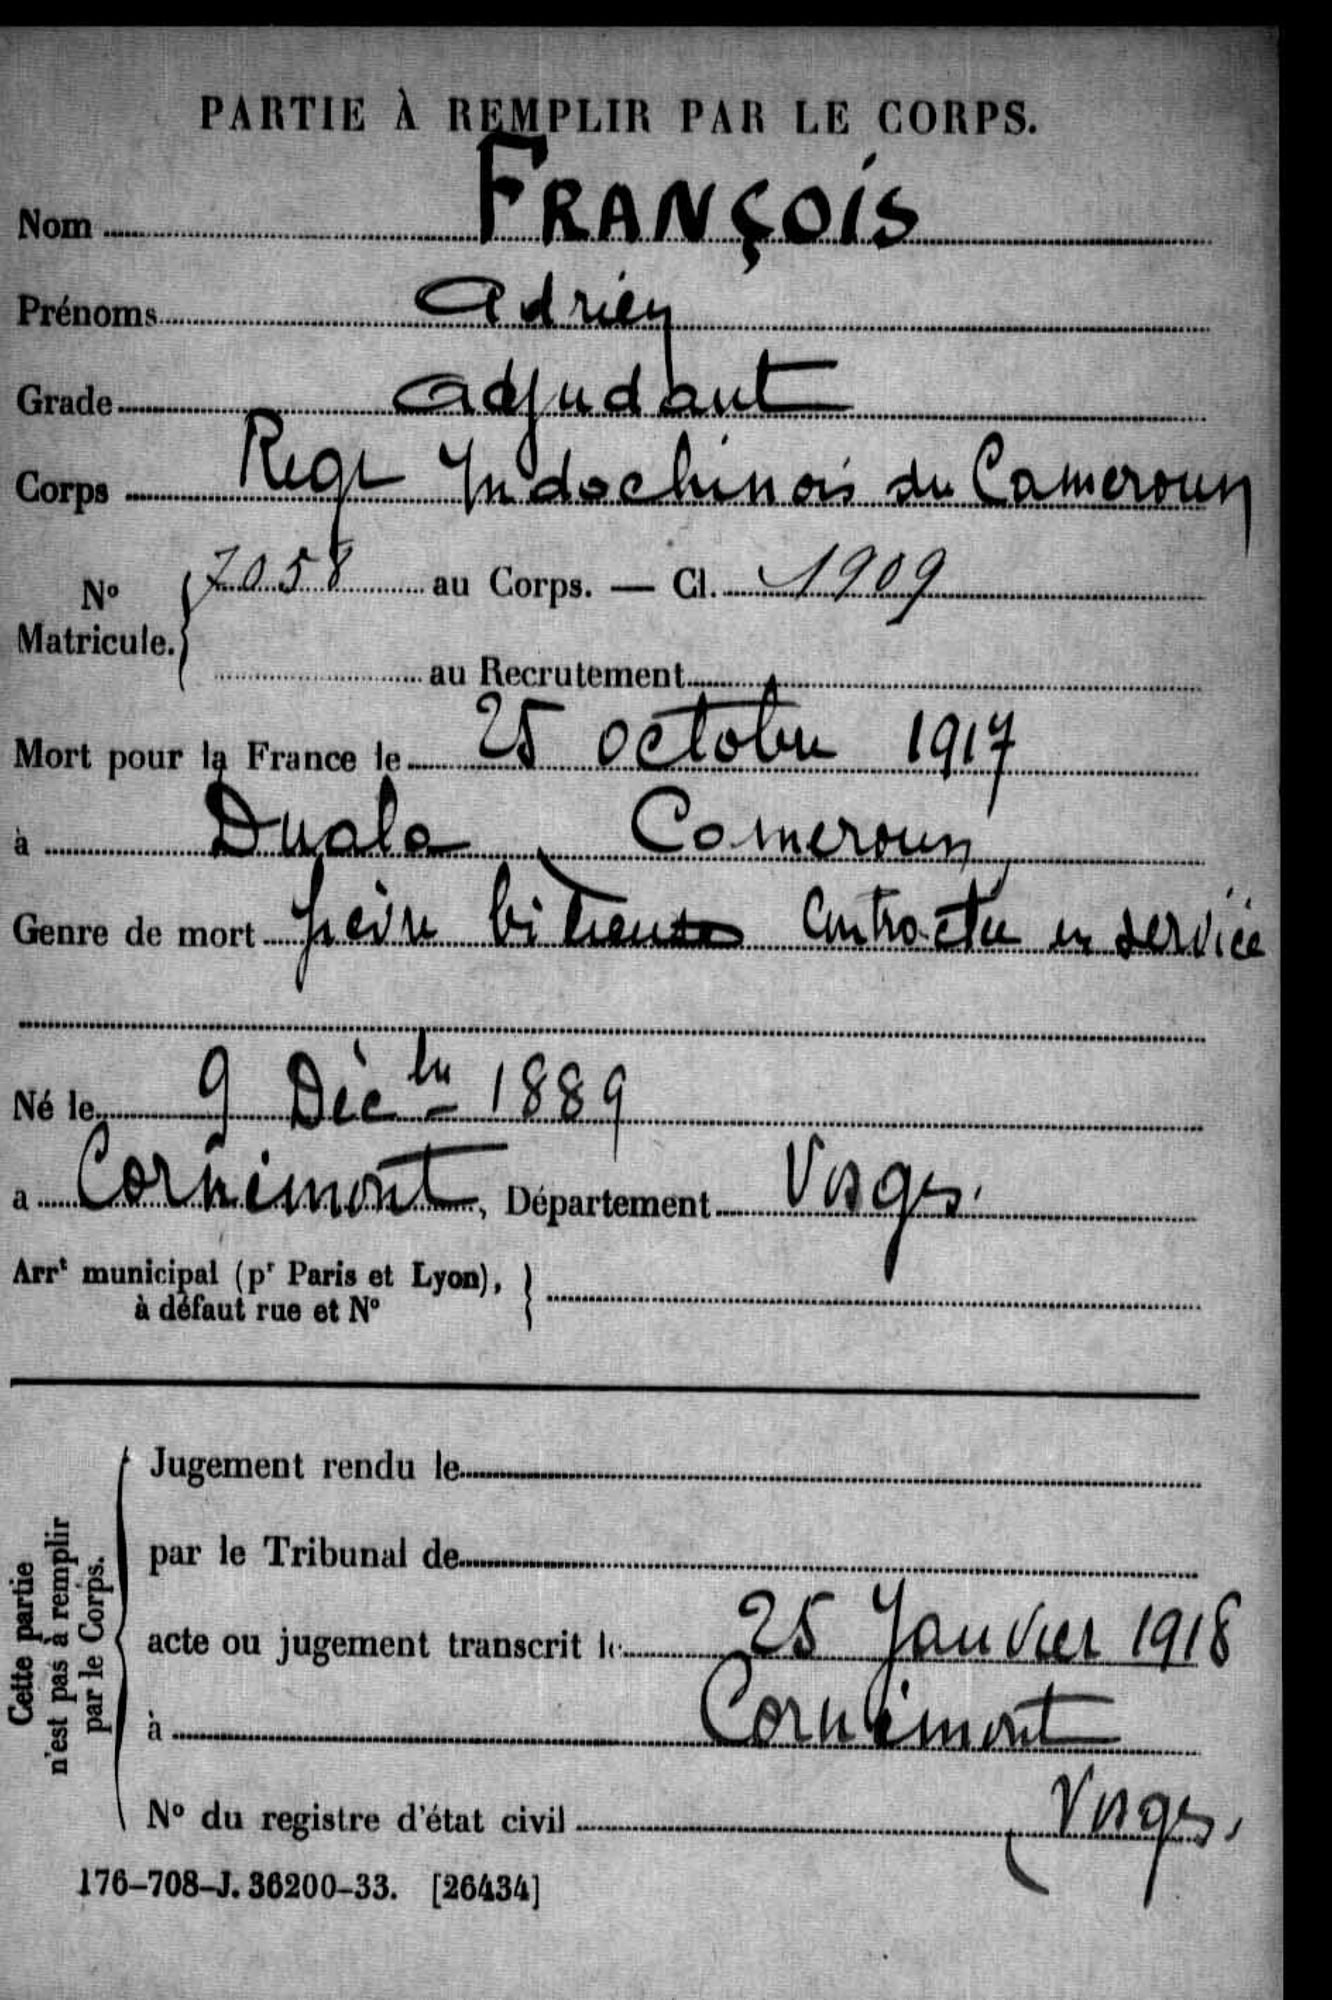 PARTIE À REMPLIR PAR LE CORPS.
Nom FRANÇOIS
Prénoms Adrien
Grade adjudant
Corps Regt Indochinois du Cameroun
N° Matricule. 7058 au Corps. — Cl. 1909
au Recrutement
Mort pour la France le 25 octobre 1917
à Duala Cameroun
Genre de mort fièvre bilieuse contractée en service
Né le 9 Déc bre 1889
a Cornimont, Département Vosges.
Arrt municipal (pr Paris et Lyon),
à défaut rue et N°
Cette partie
n'est pas à remplir
par le Corps.
Jugement rendu le
par le Tribunal de
acte ou jugement transcrit le 25 Janvier 1918
à Cornimont
N° du registre d'état civil Vosges.
176-708-J. 36200-33. [26434]